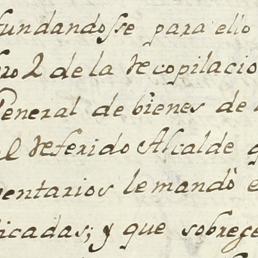 fundandosse para ello
bro 2 de la Recopilacio
General de bienes de
el Referido Alcalde q
mentarios le mandò e
icadas; y que sobrese